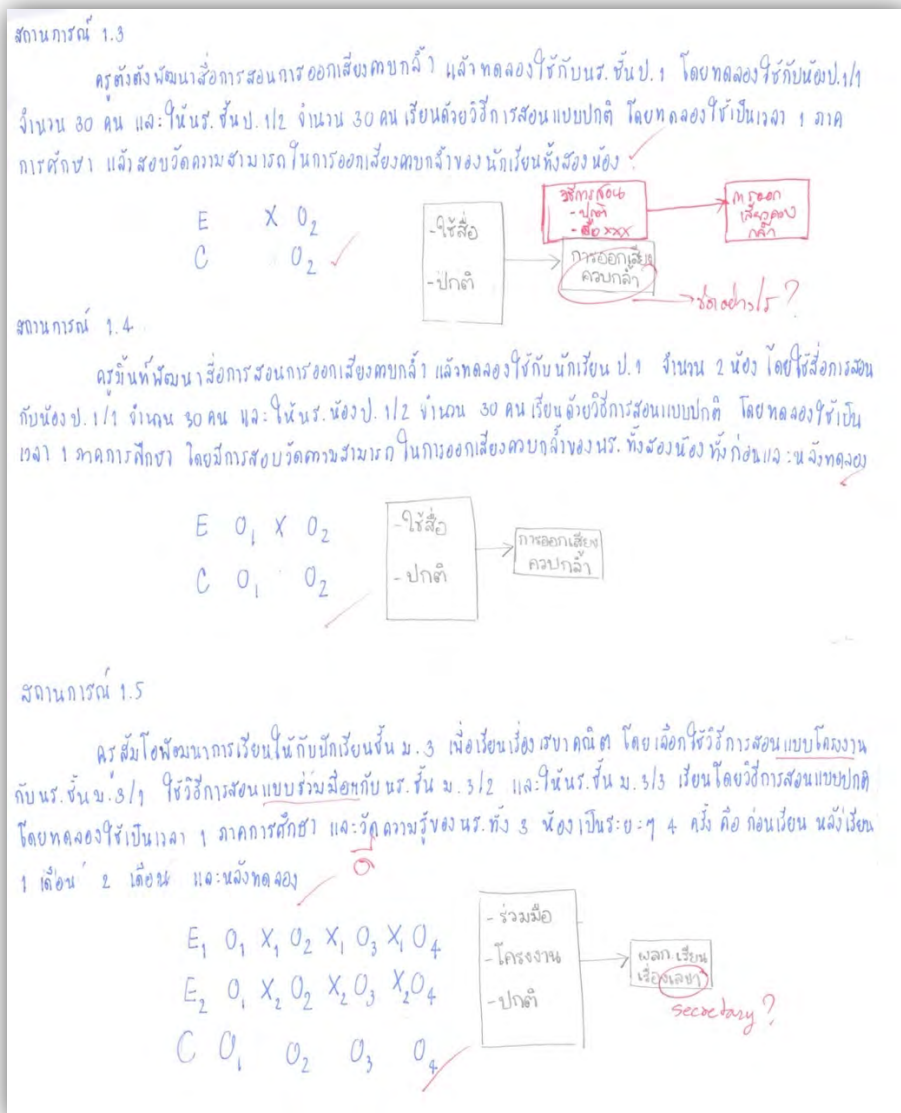 สถานการณ์ 1.3
ครูตังตังพัฒนาสื่อการสอนการออกเสียงควบกล้ำ แล้วทดลองใช้กับนร.ชั้นป.1 โดยทดลองใช้กับห้องป.1/1
จำนวน 30 คน และให้นร.ชั้นป.1/2 จำนวน 30 คน เรียนด้วยวิธีการสอนแบบปกติ โดยทดลองใช้เป็นเวลา 1 ภาค
การศึกษา แล้วสอบวัดความสามารถในการออกเสียงควบกล้ำของนักเรียนทั้งสองห้อง
วิธีการสอน
- ปกติ
- สื่อ xxx
การออก
เสียงควบ
กล้ำ
E X O2
C O2
-ใช้สื่อ
-ปกติ
การออกเสียง
ควบกล้ำ
อย่างไร?
สถานการณ์ 1.4
ครูมิ้นท์พัฒนาสื่อการสอนการออกเสียงควบกล้ำ แล้วทดลองใช้กับนักเรียน ป.1 จำนวน 2 ห้อง โดยใช้สื่อการสอน
กับห้องป.1/1 จำนวน 30 คน และให้นร.ห้องป.1/2 จำนวน 30 คน เรียนด้วยวิธีการสอนแบบปกติ โดยทดลองใช้เป็น
เวลา 1 ภาคการศึกษา โดยมีการสอบวัดความสามารถในการออกเสียงควบกล้ำของนร.ทั้งสองห้อง ทั้งก่อนและหลังทดลอง
E O1 X O2
C O1 O2
-ใช้สื่อ
- ปกติ
การออกเสียง
ควบกล้ำ
สถานการณ์ 1.5
ครูส้มโอพัฒนาการเรียนให้กับนักเรียนชั้น ม.3 เพื่อเรียนเรื่อง เรขาคณิต โดยเลือกใช้วิธีการสอนแบบโครงงาน
กับนร.ชั้น ม.3/1 ใช้วิธีการสอนแบบร่วมมือกับนร.ชั้น ม.3/2 และให้นร.ชั้น ม.3/3 เรียนโดยวิธีการสอนแบบปกติ
โดยทดลองใช้เป็นเวลา 1 ภาคการศึกษา และวัดความรู้ของนร.ทั้ง 3 ห้องเป็นระยะๆ 4 ครั้ง คือ ก่อนเรียน หลังเรียน
1 เดือน 2 เดือน และหลังทดลอง
E1 O1 X1 O2 X1 O3 X1 O4
E2 O1 X2 O2 X2 O3 X2 O4
C O1 O2 O3 O4
- ร่วมมือ
- โครงงาน
- ปกติ
ผลก.เรียน
เรื่องเลขา
secretary?